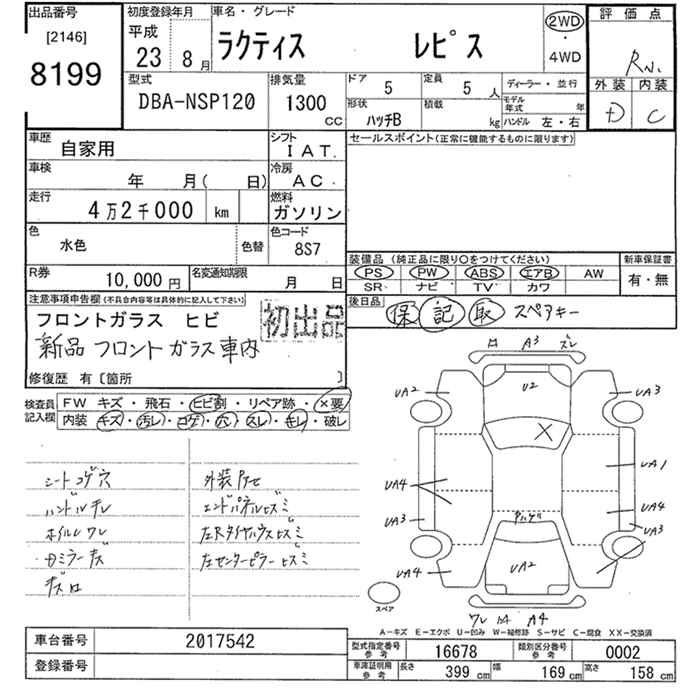 出品番号
[2146]
8199
初度登録年月
平成
23年8月
車名・グレード
ラクティス レピス
2WD
・
4WD
評価点
R
外装 内装
D C
型式
DBA-NSP120
排気量
1300
cc
ドア 5
定員 5 人
形状
ハッチB
積載
kg
ディーラー・並行
モデル年式 年
ハンドル 左・右
車歴 自家用
シフト IAT.
車検 年 月( 日)
冷房 AC
走行 4万2千000 km
燃料 ガソリン
色 水色 色替
色コード 8S7
セールスポイント(正常に機能するものに限ります)
装備品(純正品に限り○をつけてください)
PS PW ABS エアB AW
SR ナビ TV カワ
新車保証書
有・無
R券 10,000円
名変通知期限 月 日
後日品
保 記 取 スペアキー
注意事項申告欄(不具合内容等は具体的に記入して下さい)
フロントガラス ヒビ
初出品
新品 フロントガラス車内
修復歴 有〔箇所 〕
検査員記入欄
FW キズ・飛石・ヒビ割・リペア跡・×要
内装 キズ・汚レ・コゲ・穴・スレ・キレ・破レ
シートコゲ穴
ハンドルチレ
ホイルワレ
外装アセ
エンドパネルヒズミ
左Rタイヤハウスヒズミ
左センターピラーヒズミ
A3 ズレ
UA2 U2 UA3
X
UA1
UA4 UA4
UA3 UA3
UA4 UA2
スペア
ワレ A4
A-キズ E-エクボ U-凹み W-補修跡 S-サビ C-腐食 XX-交換済
車台番号 2017542
登録番号
型式指定番号参考 16678
類別区分番号参考 0002
車庫証明用参考
長さ 399 cm
幅 169 cm
高さ 158 cm